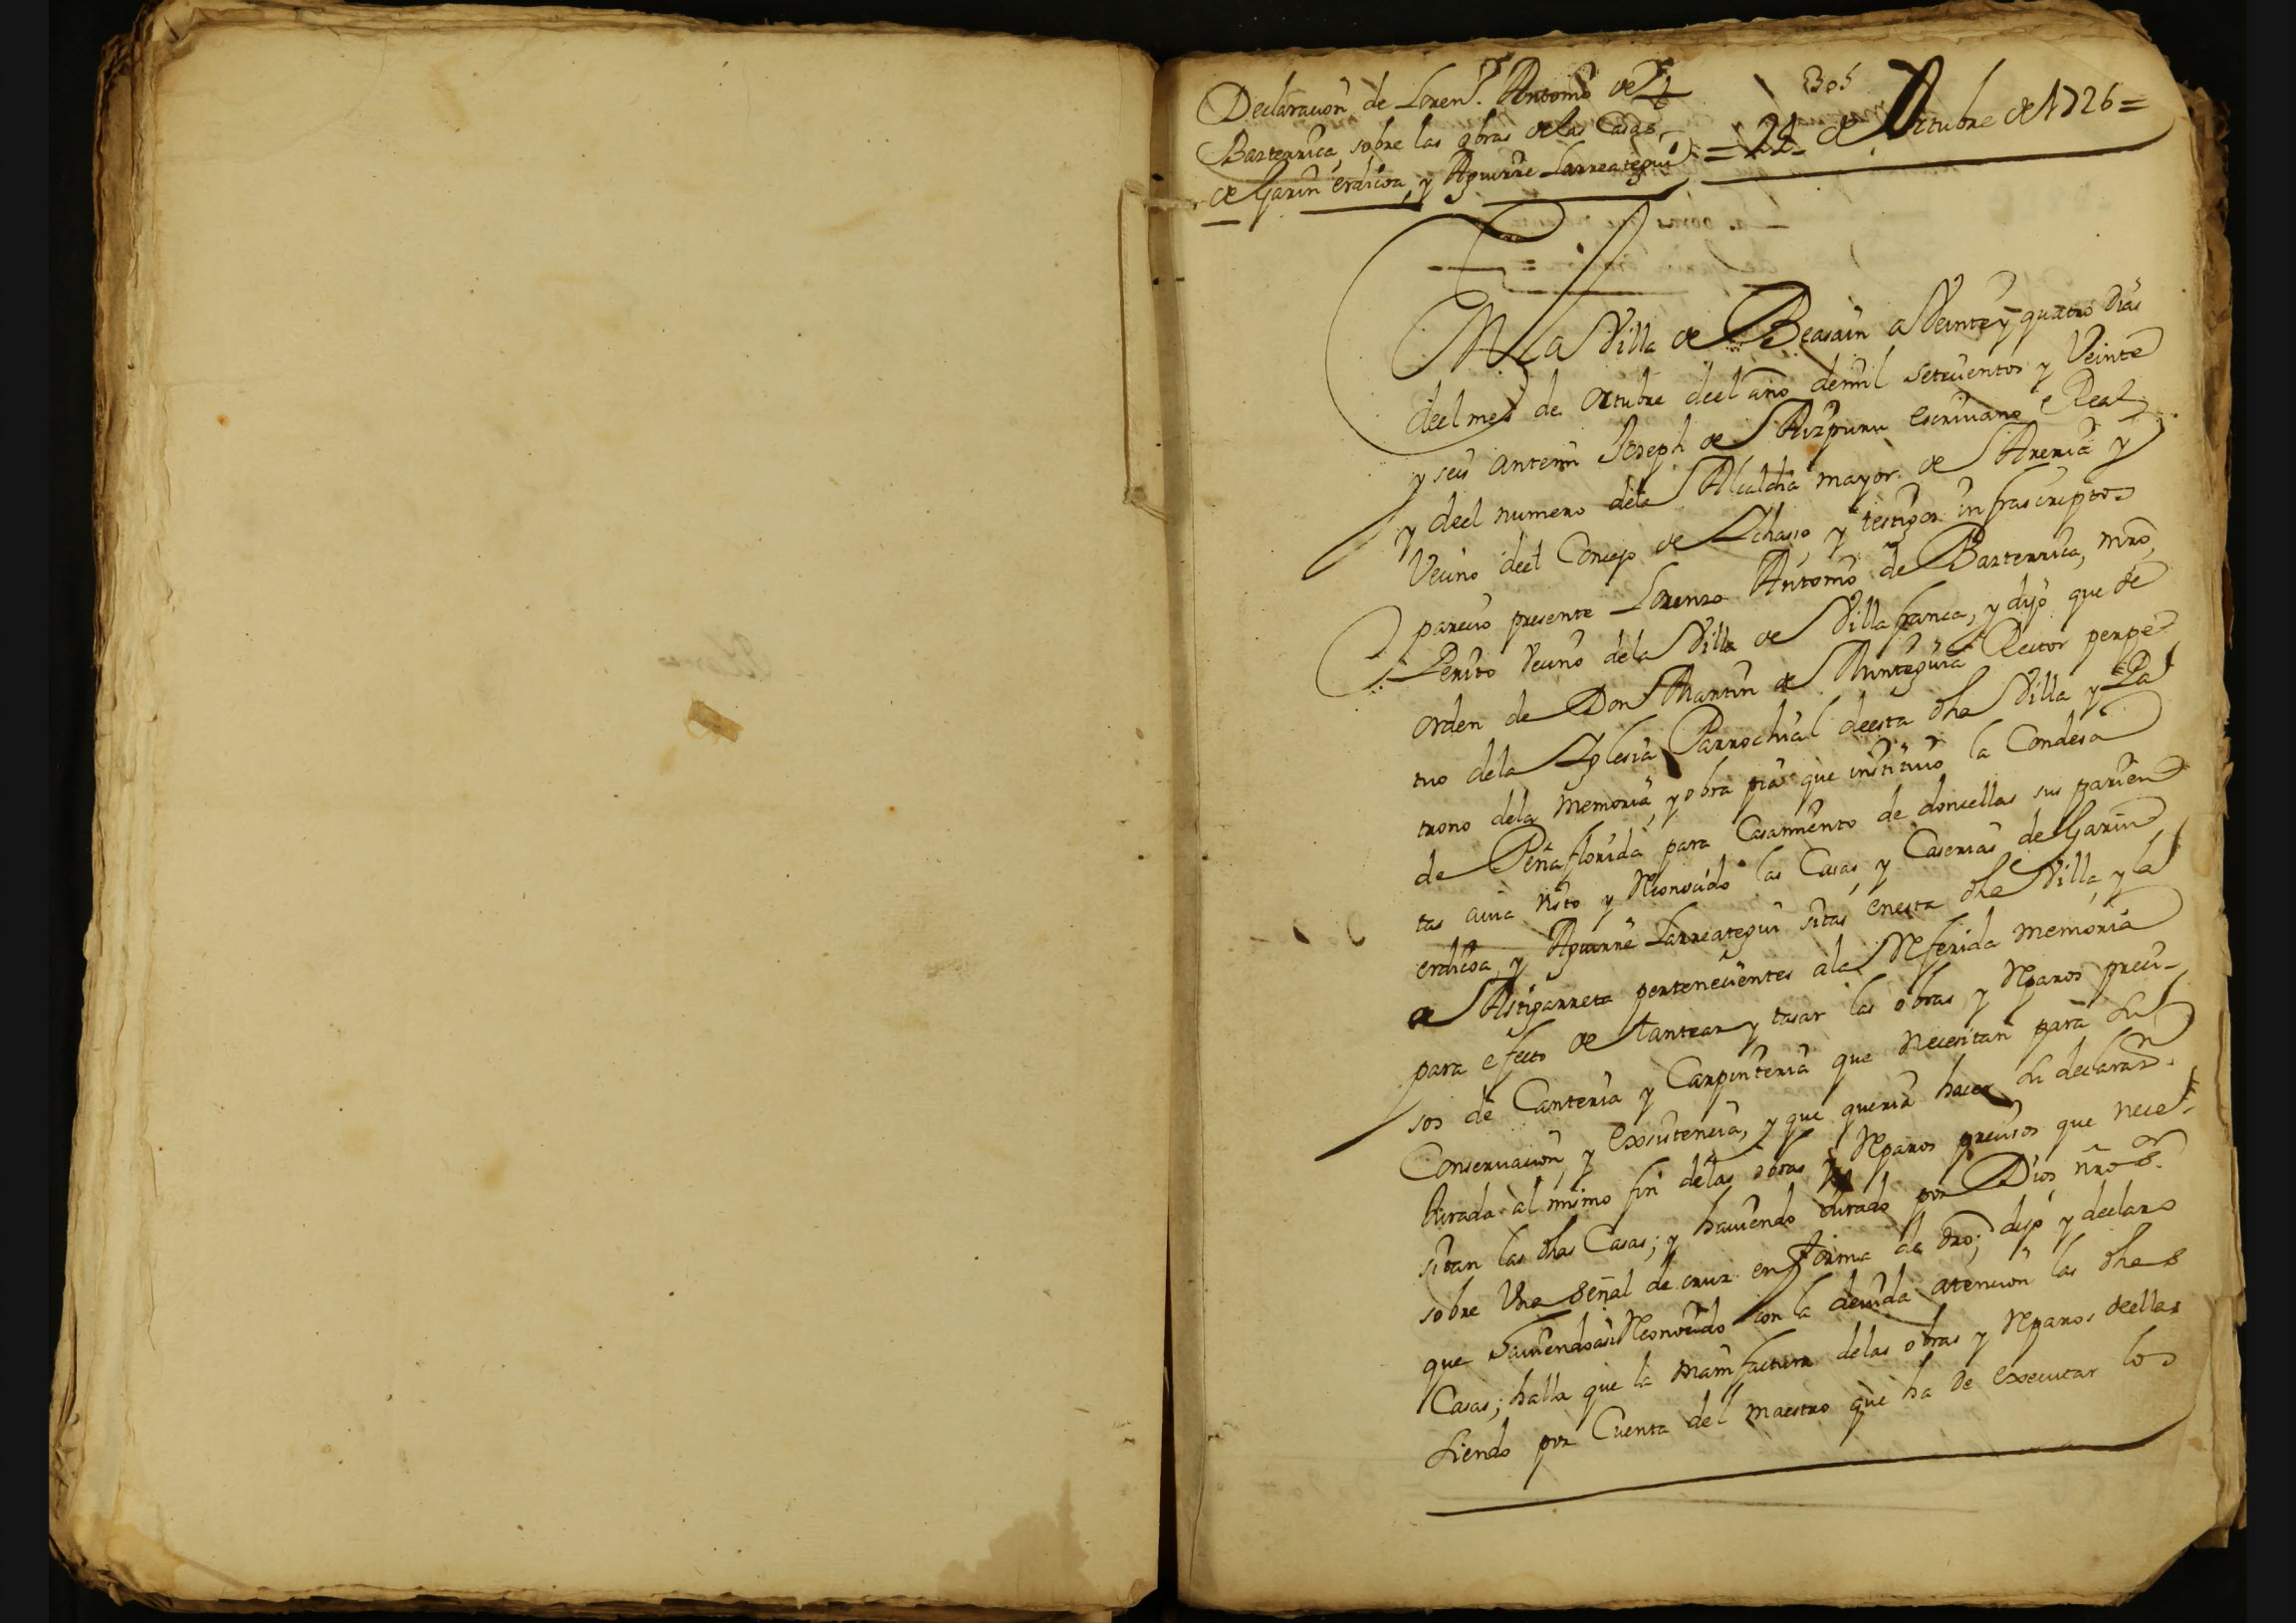 305
Declaración de Lorenº. Antonio de
Barterrica, sobre las obras de las Casas
de Garin erdicoa, y Aguirre Larreategui
= 24 de Octubre de 1726 =
En la Villa de Beasain a Veinte y quatro dias
deel mes de Octubre deel año de mil setecientos y Veinte
y seis antemi Joseph de Aizpuru escriuano Real
y deel numero dela Alcaldia mayor de Areria y
Vecino deel Concejo de Ichasso, y testigos infrascriptos
parecio presente Lorenzo Antonio de Barterrica, mro,
Perito Vecino dela Villa de Villafranca, y dijo que de
orden de Don Martin de Aunteguia Rector perpe
tuo dela Iglesia Parrochial deesta dha Villa y Pa
trono dela memoria, y obra pia que instituio la Condesa
de Peñaflorida para Casamiento de doncellas sus parien
tas auia visto y Reconocido las Casas, y Caserias de Garin
erdicoa, y Aguirre Larreategui sitas enesta dha Villa, y la
de Astigarreta pertenecientes ala Referida memoria
para efecto de tantear y tasar las obras y Reparos preci-
sos de Canteria y Carpinteria que Necesitan para su
Conseruacion, y Existencia, y que queria hacer su declaraon.
Jurada al mismo fin delas obras y Reparos precisos que nece-
sitan las dhas Casas; y hauiendo Jurado por Dios nro Sr.
sobre Una Señal de cruz en forma de dro; dijo y declaro
que hauiendo asi Reconocido con la deuida atencion las dhas
Casas; halla que la Manifactura delas obras y Reparos deellas
Siendo por Cuenta del maestro que ha de Executar los